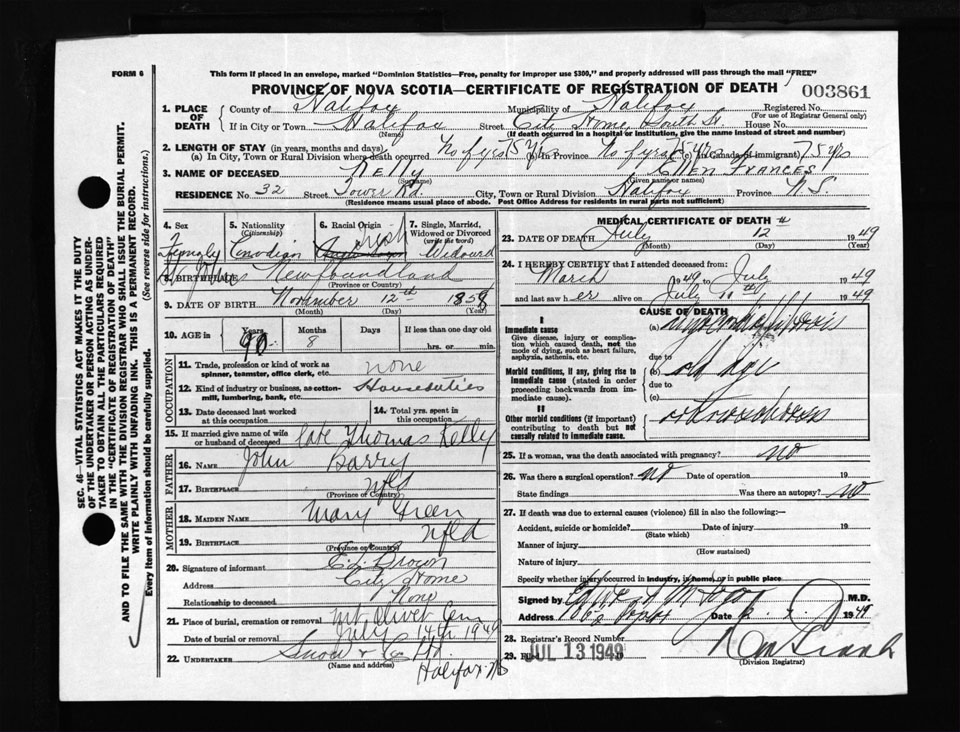 FORM 6
This form if placed in an envelope, marked "Dominion Statistics—Free, penalty for improper use $300," and properly addressed will pass through the mail "FREE"
PROVINCE OF NOVA SCOTIA—CERTIFICATE OF REGISTRATION OF DEATH
003861
1. PLACE OF DEATH
County of Halifax Municipality of Halifax Registered No.
(For use of Registrar General only)
If in City or Town Halifax Street City Home, South St. House No.
(Name) (If death occurred in a hospital or institution, give the name instead of street and number)
2. LENGTH OF STAY (in years, months and days).
(a) In City, Town or Rural Division where death occurred No of yrs 75 yrs (b) In Province No of yrs 75 yrs (c) In Canada (if immigrant) 75 yrs
3. NAME OF DECEASED Kelly Ellen Frances
(Surname) (Given name or names)
RESIDENCE No. 32 Street Tower Rd. City, Town or Rural Division Halifax Province N.S.
(Residence means usual place of abode. Post Office Address for residents in rural parts not sufficient)
4. Sex
F
Female
5. Nationality
(Citizenship)
Canadian
6. Racial Origin
Irish
7. Single, Married, Widowed or Divorced
(write the word)
Widowed
8. BIRTHPLACE St. Johns Newfoundland
(Province or Country)
9. DATE OF BIRTH November 12th 1858
(Month) (Day) (Year)
10. AGE in
Years Months Days If less than one day old
90 8 hrs. or min.
OCCUPATION
11. Trade, profession or kind of work as spinner, teamster, office clerk, etc. none
12. Kind of industry or business, as cotton-mill, lumbering, bank, etc. Houseduties
13. Date deceased last worked at this occupation
14. Total yrs. spent in this occupation
15. If married give name of wife or husband of deceased late Thomas Kelly
FATHER
16. NAME John Barry
17. BIRTHPLACE Nfld
(Province or Country)
MOTHER
18. MAIDEN NAME Mary Green
19. BIRTHPLACE Nfld
(Province or Country)
20. Signature of informant Ed. Brown
Address City Home
Relationship to deceased None
21. Place of burial, cremation or removal Mt Olivet Cem
Date of burial or removal July 14th 1949
22. UNDERTAKER Snow & Co Ltd.
(Name and address) Halifax N.S
MEDICAL CERTIFICATE OF DEATH
23. DATE OF DEATH July 12 1949
(Month) (Day) (Year)
24. I HEREBY CERTIFY that I attended deceased from:
March 1949 to July 1949
and last saw her alive on July 11th 1949
CAUSE OF DEATH
I
Immediate cause
Give disease, injury or complication which caused death, not the mode of dying, such as heart failure, asphyxia, asthenia, etc.
(a)
due to
Morbid conditions, if any, giving rise to immediate cause (stated in order proceeding backwards from immediate cause).
(b) old age
due to
(c)
II
Other morbid conditions (if important) contributing to death but not causally related to immediate cause.
25. If a woman, was the death associated with pregnancy? no
26. Was there a surgical operation? no Date of operation 19
State findings Was there an autopsy? no
27. If death was due to external causes (violence) fill in also the following:—
Accident, suicide or homicide? Date of injury 19
(State which)
Manner of injury
(How sustained)
Nature of injury
Specify whether injury occurred in industry, in home, or in public place
Signed by M.D.
Address Date 1949
28. Registrar's Record Number
29. Filed JUL 13 1949
(Division Registrar)
SEC. 46—VITAL STATISTICS ACT MAKES IT THE DUTY
OF THE UNDERTAKER OR PERSON ACTING AS UNDER-
TAKER TO OBTAIN ALL THE PARTICULARS REQUIRED
IN THE "CERTIFICATE OF REGISTRATION OF DEATH"
AND TO FILE THE SAME WITH THE DIVISION REGISTRAR WHO SHALL ISSUE THE BURIAL PERMIT.
WRITE PLAINLY WITH UNFADING INK. THIS IS A PERMANENT RECORD.
Every item of information should be carefully supplied. (See reverse side for instructions.)